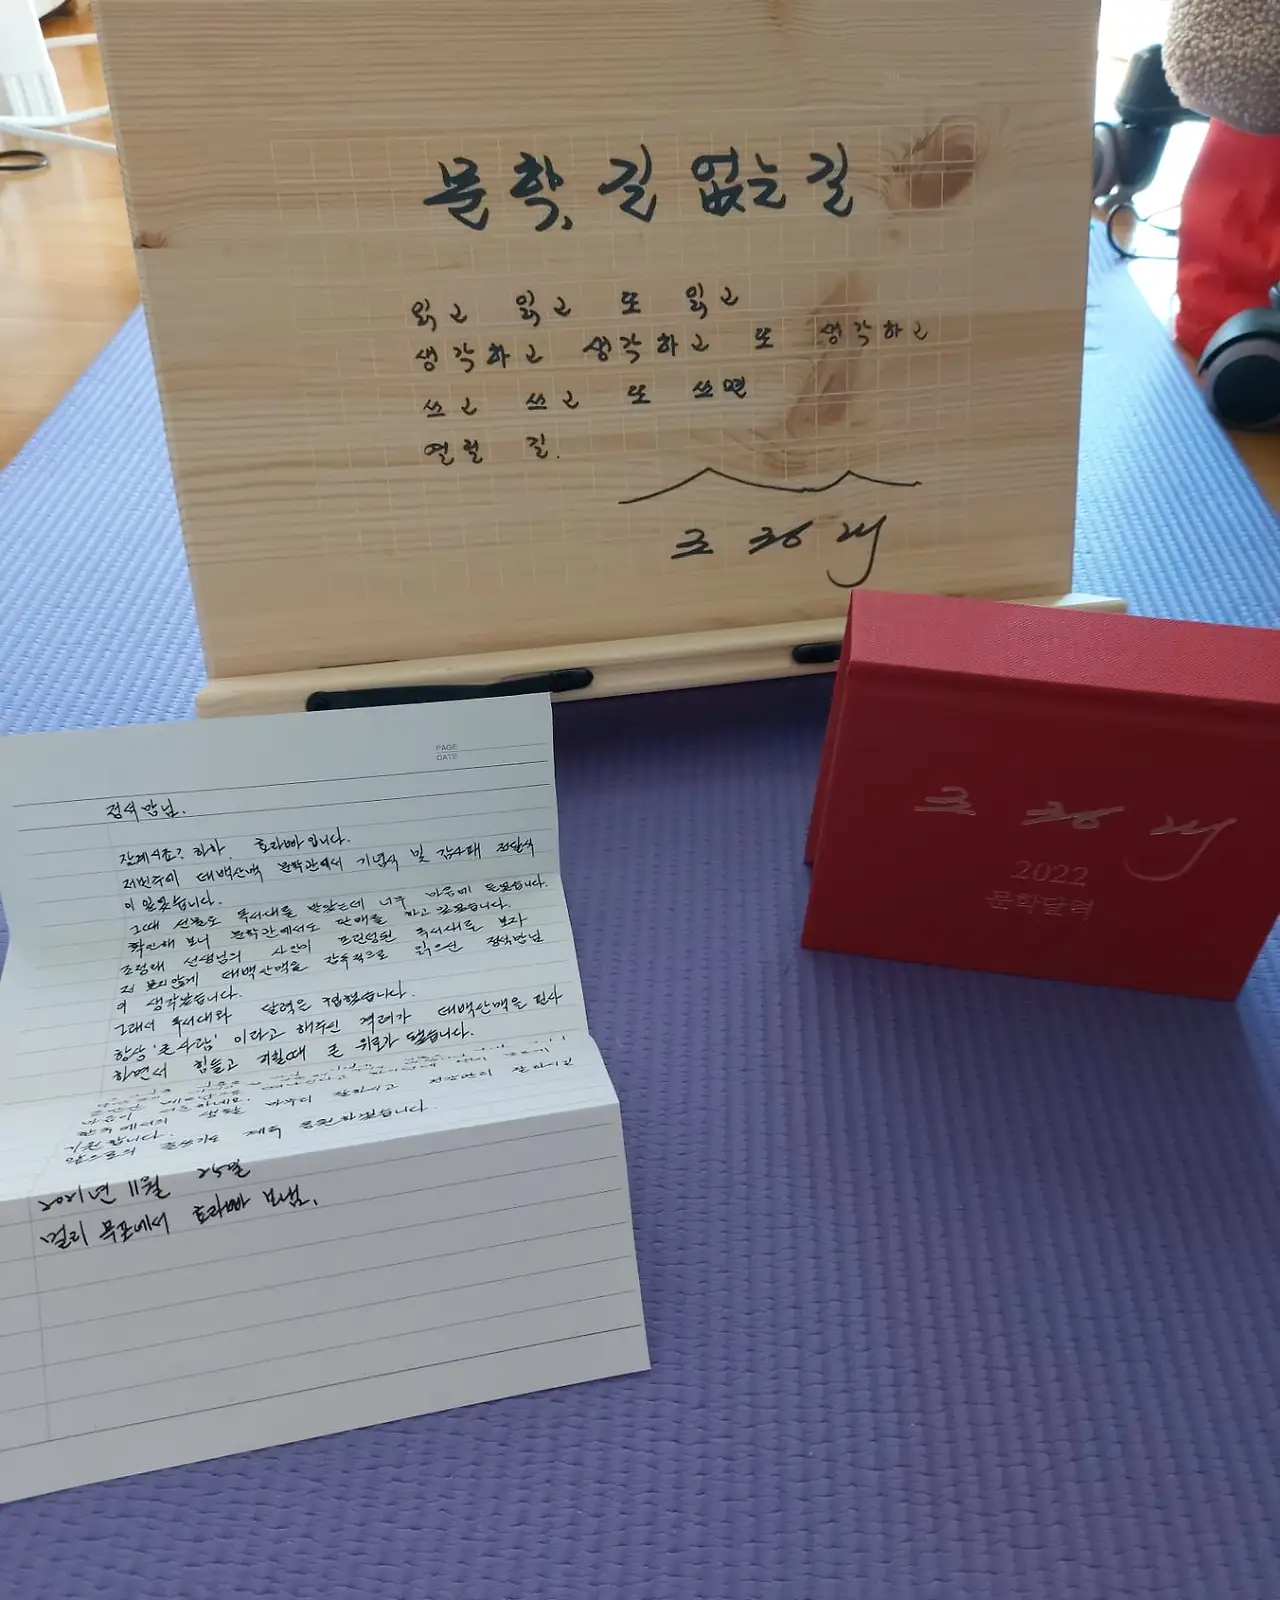 문학, 길 없는 길
읽고 읽고 또 읽고
생각하고 생각하고 또 생각하고
쓰고 쓰고 또 쓰면
열릴 길.
조정래
PAGE
DATE
정석맘님.
잘계시죠? 하하. 효라빠입니다.
저번주에 태백산맥 문학관에서 기념식 및 감사패 전달식
이 있었습니다.
그때 선물도 독서대를 받았는데 너무 마음에 들었습니다.
확인해 보니 문학관에서도 판매를 하고 있었습니다.
조정래 선생님의 사인이 프린팅된 독서대를 보자
저 못지않게 태백산맥을 감동적으로 읽으신 정석맘님
이 생각났습니다.
그래서 독서대와 달력을 구입했습니다.
항상 '큰사람' 이라고 해주신 격려가 태백산맥을 필사
하면서 힘들고 지칠때 큰 위로가 됐습니다.
마음이
한국에서의 생활 마무리 잘하시고 건강하게 잘
기원합니다.
앞으로의 글쓰기도 계속 응원하겠습니다.
2021년 11월 25일
멀리 목포에서 효라빠 보냄.
조정래
2022
문학달력